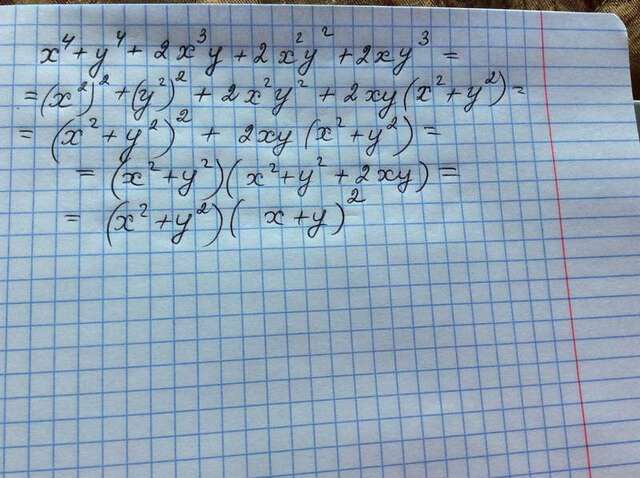 x⁴+y⁴+2x³y+2x²y²+2xy³=
=(x²)²+(y²)²+2x²y²+2xy(x²+y²)=
=(x²+y²)²+2xy(x²+y²)=
=(x²+y²)(x²+y²+2xy)=
=(x²+y²)(x+y)²